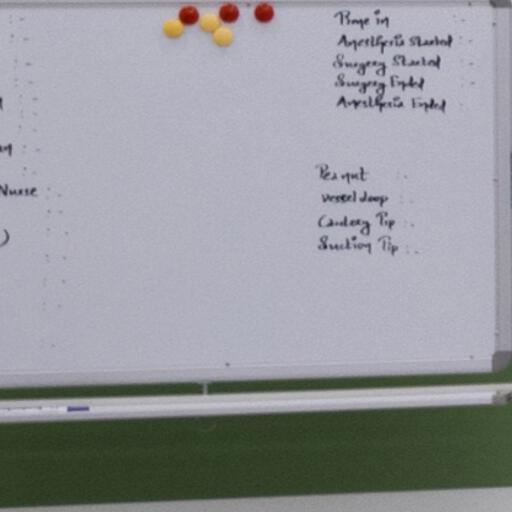 Anesthesia Started :
Surgery Started :
Surgery Ended :
Anesthesia Ended :
Nurse
Peanut :
Vessel loop :
Cautery Tip :
Suction Tip :